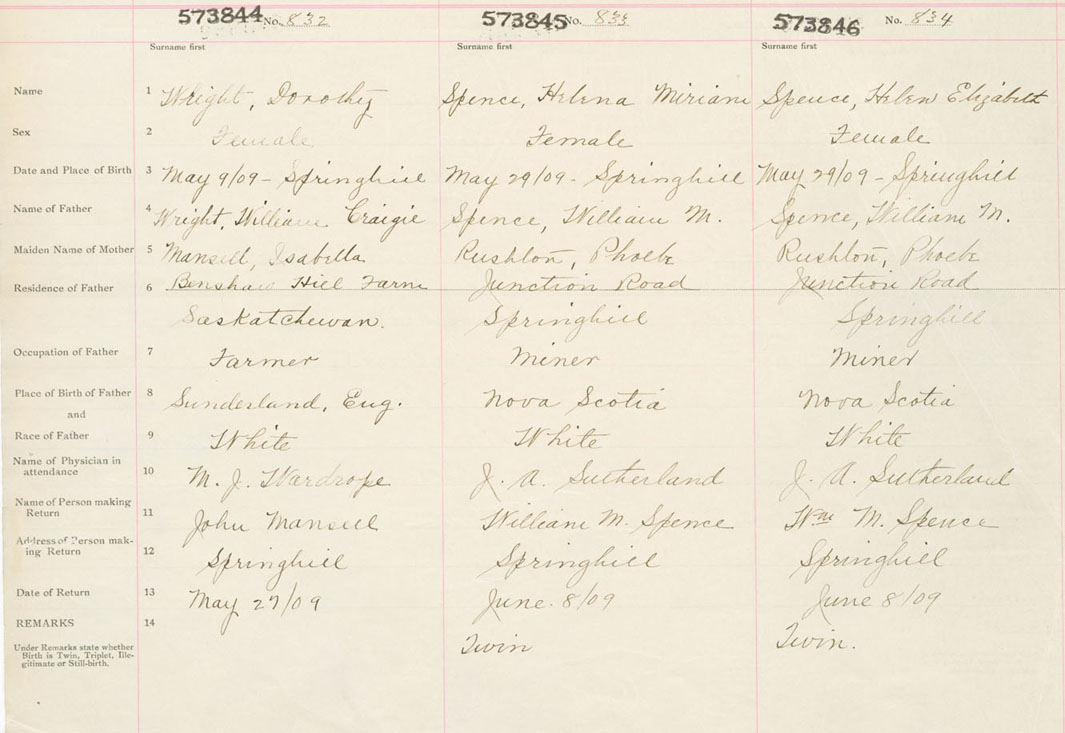 573844 No. 832 573845 No. 833 573846 No. 834
Surname first Surname first Surname first
Name 1 Wright, Dorothy Spence, Helena Miriam Spence, Helen Elizabeth
Sex 2 Female Female Female
Date and Place of Birth 3 May 9/09 - Springhill May 29/09 - Springhill May 29/09 - Springhill
Name of Father 4 Wright, William Craigie Spence, William M. Spence, William M.
Maiden Name of Mother 5 Mansell, Isabella Rushton, Phoebe Rushton, Phoebe
Residence of Father 6 Hill Farm Junction Road Junction Road
Saskatchewan. Springhill Springhill
Occupation of Father 7 Farmer Miner Miner
Place of Birth of Father 8 Sunderland, Eng. Nova Scotia Nova Scotia
and
Race of Father 9 White White White
Name of Physician in
attendance 10 M. J. Wardrope J. A. Sutherland J. A. Sutherland
Name of Person making
Return 11 John Mansell William M. Spence Wm M. Spence
Address of Person mak-
ing Return 12 Springhill Springhill Springhill
Date of Return 13 May 27/09 June 8/09 June 8/09
REMARKS 14 Twin Twin.
Under Remarks state whether
Birth is Twin, Triplet, Ille-
gitimate or Still-birth.